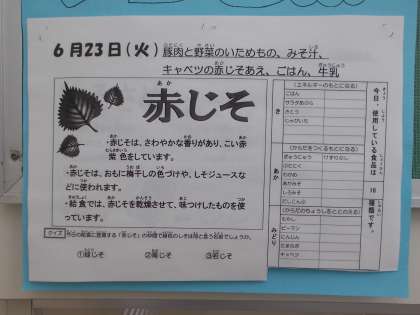 6月23日(火)豚肉と野菜のいためもの、みそ汁、
キャベツの赤じそあえ、ごはん、牛乳
赤じそ
・赤じそは、さわやかな香りがあり、こい赤
紫色をしています。
・赤じそは、おもに梅干しの色づけや、しそジュース
などに使われます。
・給食では、赤じそを乾燥させて、味つけしたものを使
っています。
クイズ
①緑じそ ②青じそ ③若じそ
今日、使用している食品は
16
種類です。
き
(エネルギーのもとになる)
ごはん
サラダあぶら
さとう
じゃがいも
あか
(からだをつくるもとになる)
ぎゅうにゅう
ぶたにく
わかめ
あかみそ
しろみそ
みどり
(からだのちょうしをととのえる)
もやし
ピーマン
にんじん
たまねぎ
キャベツ